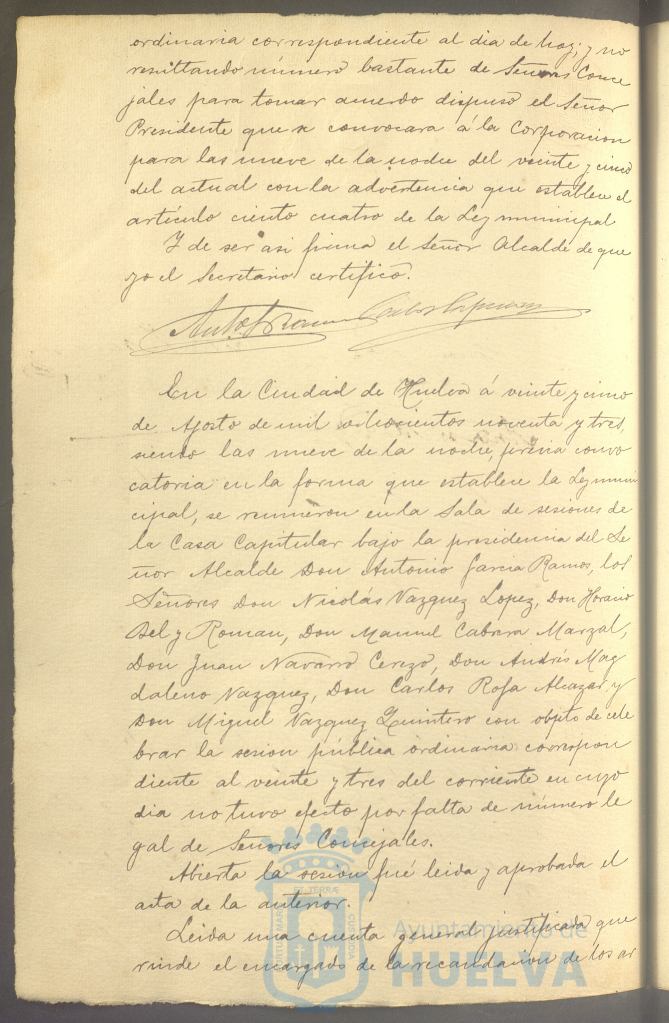 ordinaria correspondiente al dia de hoy; y no
resultando número bastante de Señores Conce
jales para tomar acuerdo dispuso el Señor
Presidente que se convocara á la Corporacion
para las nueve de la noche del veinte y cinco
del actual con la advertencia que establece el
artículo ciento cuatro de la Ley municipal
Y de ser asi firma el Señor Alcalde de que
yo el Secretario certifico.
En la Ciudad de Huelva á veinte y cinco
de Agosto de mil ochocientos noventa y tres,
siendo las nueve de la noche, previa convo
catoria en la forma que establece la Ley muni
cipal, se reunieron en la Sala de sesiones de
la Casa Capitular bajo la presidencia del Se
ñor Alcalde Don Antonio Garcia Ramos, los
Señores Don Nicolás Vazquez Lopez, Don Horacio
Bel y Roman, Don Manuel Cabrera Marzal,
Don Juan Navarro Cerezo, Don Andrés Mag
daleno Vazquez, Don Carlos Rofa Alcazar, y
Don Miguel Vazquez Quintero con objeto de cele
brar la sesion pública ordinaria correspon
diente al veinte y tres del corriente en cuyo
dia no tuvo efecto por falta de número le
gal de Señores Concejales.
Abierta la sesion fué leida y aprobada el
acta de la anterior.
Leida una cuenta general justificada que
rinde el encargado de la recaudacion de los ar
Ayuntamiento de
HUELVA